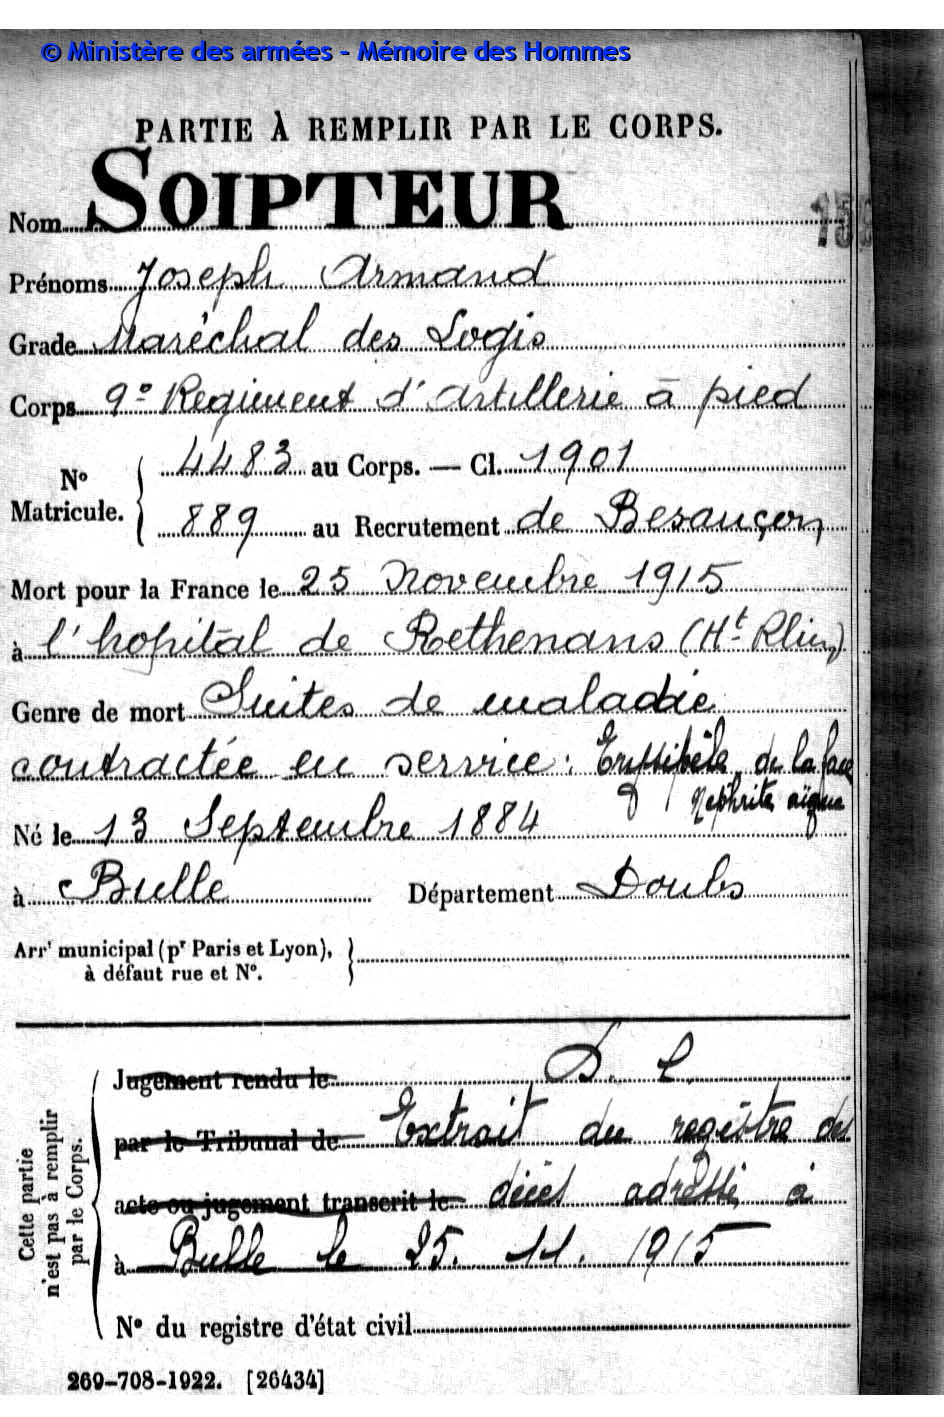 © Ministère des armées - Mémoire des Hommes
PARTIE À REMPLIR PAR LE CORPS.
Nom SOIPTEUR
Prénoms Joseph Armand
Grade Maréchal des Logis
Corps 9e Regiment d'Artillerie à pied
No Matricule. 4483 au Corps. — Cl. 1901
889 au Recrutement de Besançon
Mort pour la France le 25 Novembre 1915
à l'hopital de Rethenans (Ht Rhin)
Genre de mort Suites de maladie
contractée en service : Erysipèle de la face
Nephrite aigue
Né le 13 Septembre 1884
à Bulle Département Doubs
Arrt municipal (pr Paris et Lyon),
à défaut rue et No.
Cette partie
n'est pas à remplir
par le Corps.
Jugement rendu le D. C.
par le Tribunal de Extrait du registre des
acte ou jugement transcrit le décès adressé à
à Bulle le 25. 11. 1915
No du registre d'état civil
269-708-1922. [26434]